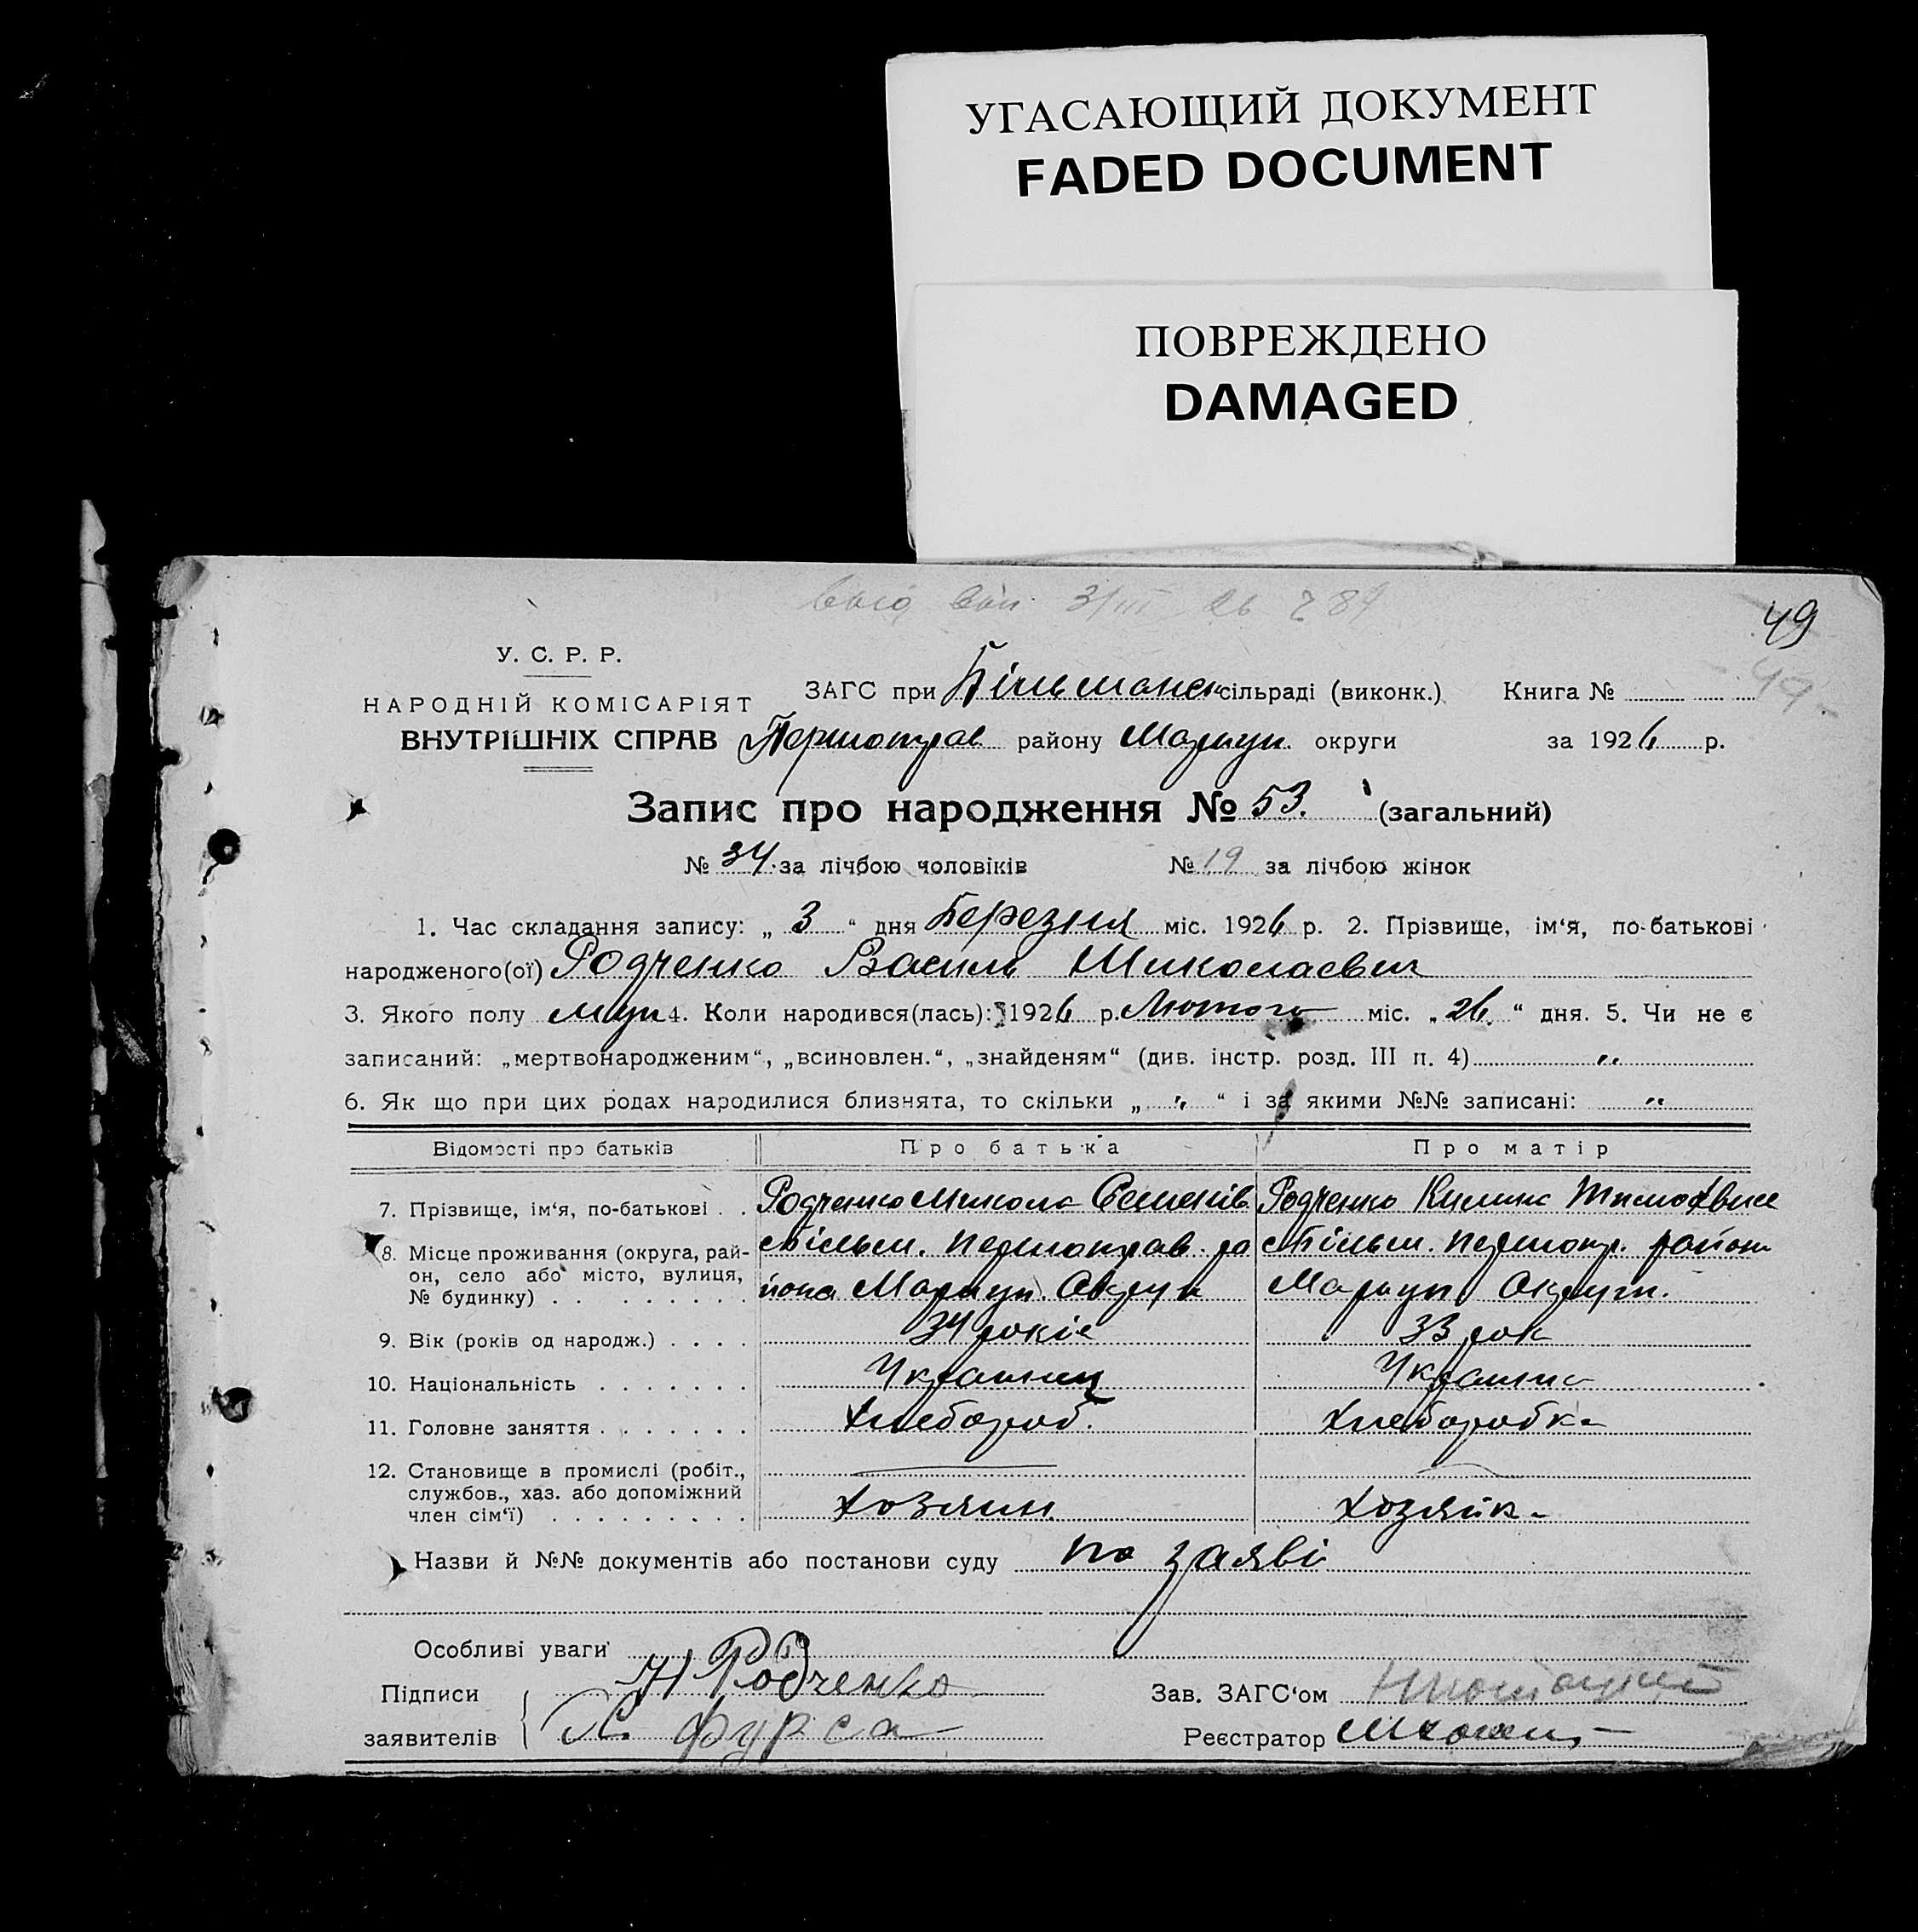 УГАСАЮЩИЙ ДОКУМЕНТ
FADED DOCUMENT
ПОВРЕЖДЕНО
DAMAGED
3/III 26
49
У. С. Р. Р.
НАРОДНІЙ КОМІСАРІЯТ
ВНУТРІШНІХ СПРАВ
ЗАГС при Більманск сільраді (виконк.) Книга № 49
Першотрав району Маріуп. округи за 1926 р.
Запис про народження № 53. (загальний)
№ 34. за лічбою чоловіків № 19 за лічбою жінок
1. Час складання запису: „ 3 “ дня Березня міс. 1926 р. 2. Прізвище, ім‘я, по-батькові
народженого(ої) Родченко Василь Миколаєвич
3. Якого полу муж 4. Коли народився(лась): 1926 р. Лютого міс. „ 26. “ дня. 5. Чи не є
записаний: „мертвонародженим“, „всиновлен.“, „знайденям“ (див. інстр. розд. III п. 4) „
6. Як що при цих родах народилися близнята, то скільки „ „ “ і за якими №№ записані: „
Відомості про батьків Про батька Про матір
7. Прізвище, ім‘я, по-батькові . . Родченко Микола Семенів Родченко Килина
8. Місце проживання (округа, рай- с Більм. Першотрав. ра с Більм. Першотр. району
он, село або місто, вулиця, йона Маріуп. Округи Маріуп Округи.
№ будинку) . . . . . . . . .
9. Вік (років од народж.) . . . . 34 років 33 рок
10. Національність . . . . . . . Українец Українка
11. Головне заняття . . . . . . . Хлебороб. Хлеборобка
12. Становище в промислі (робіт.,
службов., хаз. або допоміжний
член сім‘ї) . . . . . . . . . Хозяин. Хозяйка
Назви й №№ документів або постанови суду по заяві
Особливі уваги
Підписи Н Родченко Зав. ЗАГС‘ом
заявителів Х. Фурса Реєстратор